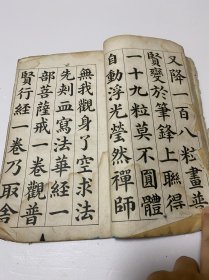 又降一百八粒畫普
賢變於筆鋒上聯得
一十九粒莫不圓體
自動浮光瑩然禪師
無我觀身了空求法
先刾血寫法華經一
部菩薩戒一卷觀普
賢行經一卷乃取舍